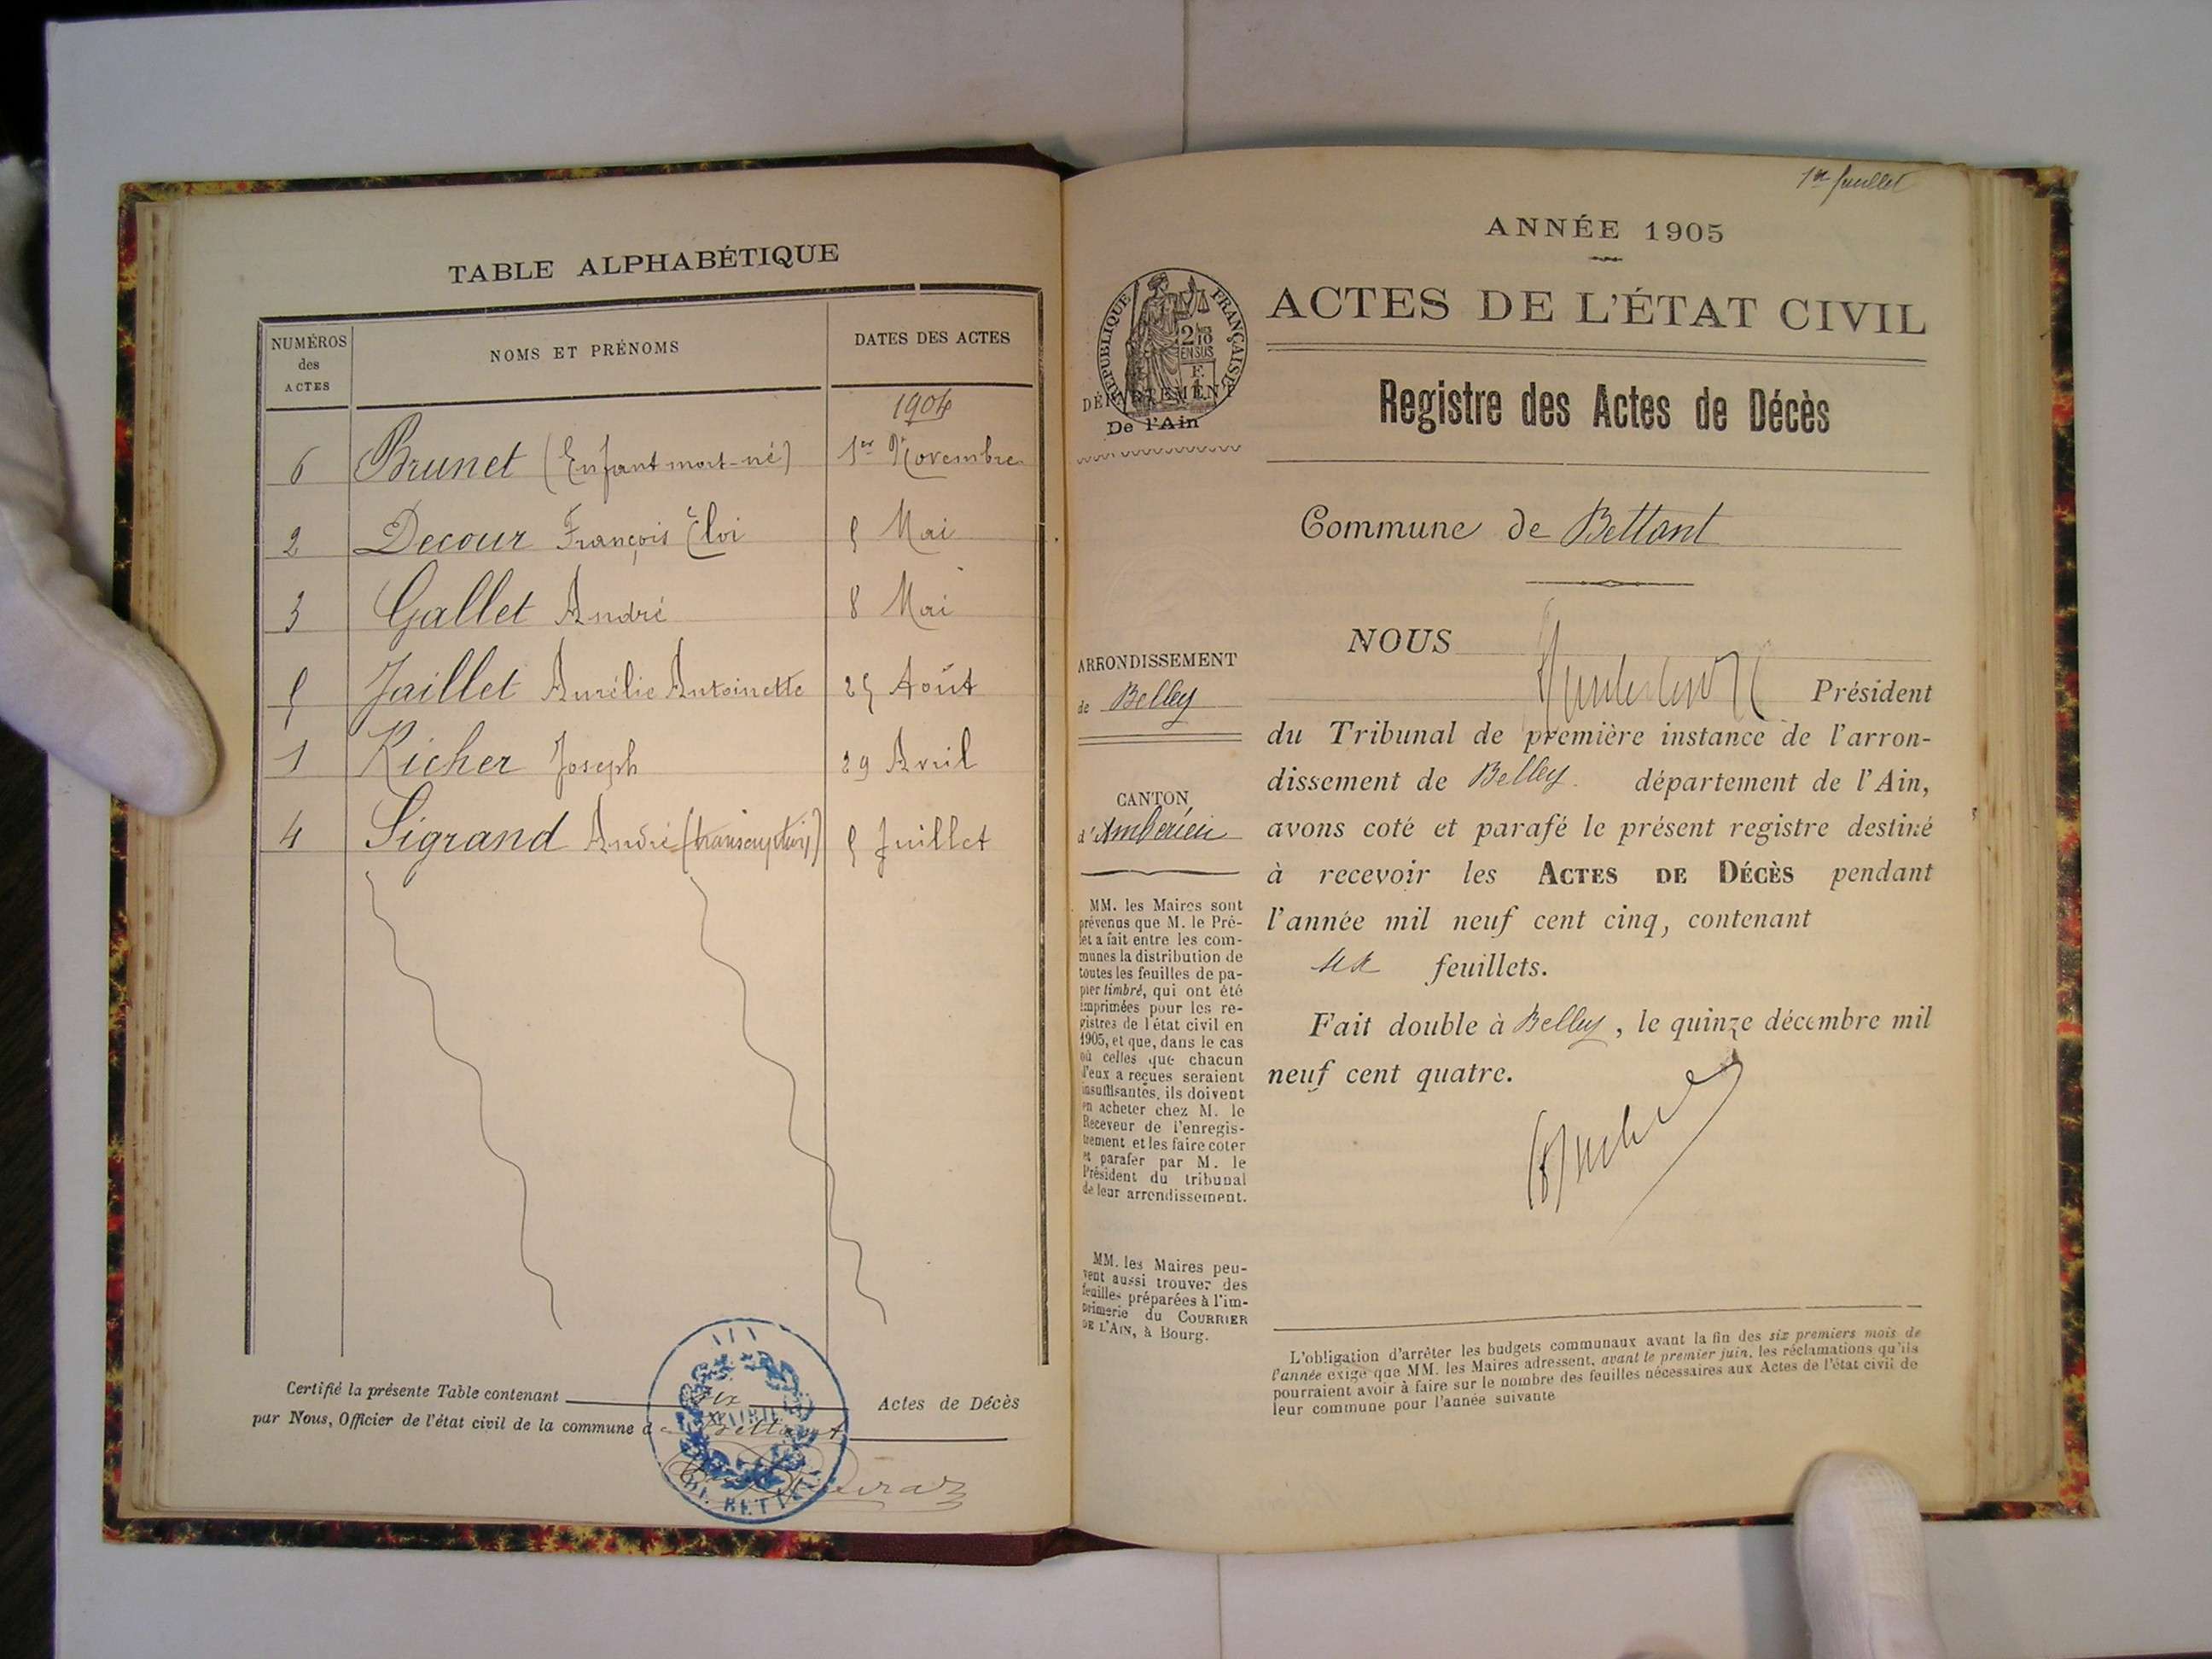 TABLE ALPHABÉTIQUE
NUMÉROS des ACTES
NOMS ET PRÉNOMS
DATES DES ACTES
1904
6 Brunet (Enfant mort-né) 1er Novembre
2 Decour François Éloi 5 Mai
3 Gallet André 8 Mai
5 Jaillet Aurélie Antoinette 25 Août
1 Richer Joseph 29 Avril
4 Sigrand André (transcription) 5 Juillet
Certifié la présente Table contenant six Actes de Décès
par Nous, Officier de l'état civil de la commune de Bettant
1er feuillet
ANNÉE 1905
ACTES DE L'ÉTAT CIVIL
RÉPUBLIQUE FRANÇAISE
2/10
EN SUS
DÉPARTEMENT
De l'Ain
Registre des Actes de Décès
Commune de Bettant
ARRONDISSEMENT
de Belley
CANTON
d'Ambérieu
MM. les Maires sont
prévenus que M. le Pré-
fet a fait entre les com-
munes la distribution de
toutes les feuilles de pa-
pier timbré, qui ont été
imprimées pour les re-
gistres de l'état civil en
1905, et que, dans le cas
où celles que chacun
d'eux a reçues seraient
insuffisantes, ils doivent
en acheter chez M. le
Receveur de l'enregis-
trement et les faire coter
et parafer par M. le
Président du tribunal
de leur arrondissement.
MM. les Maires peu-
vent aussi trouver des
feuilles préparées à l'im-
primerie du COURRIER
DE L'AIN, à Bourg.
NOUS
Président
du Tribunal de première instance de l'arron-
dissement de Belley département de l'Ain,
avons coté et parafé le présent registre destiné
à recevoir les ACTES DE DÉCÈS pendant
l'année mil neuf cent cinq, contenant
six feuillets.
Fait double à Belley, le quinze décembre mil
neuf cent quatre.
L'obligation d'arrêter les budgets communaux avant la fin des six premiers mois de
l'année exige que MM. les Maires adressent, avant le premier juin, les réclamations qu'ils
pourraient avoir à faire sur le nombre des feuilles nécessaires aux Actes de l'état civil de
leur commune pour l'année suivante